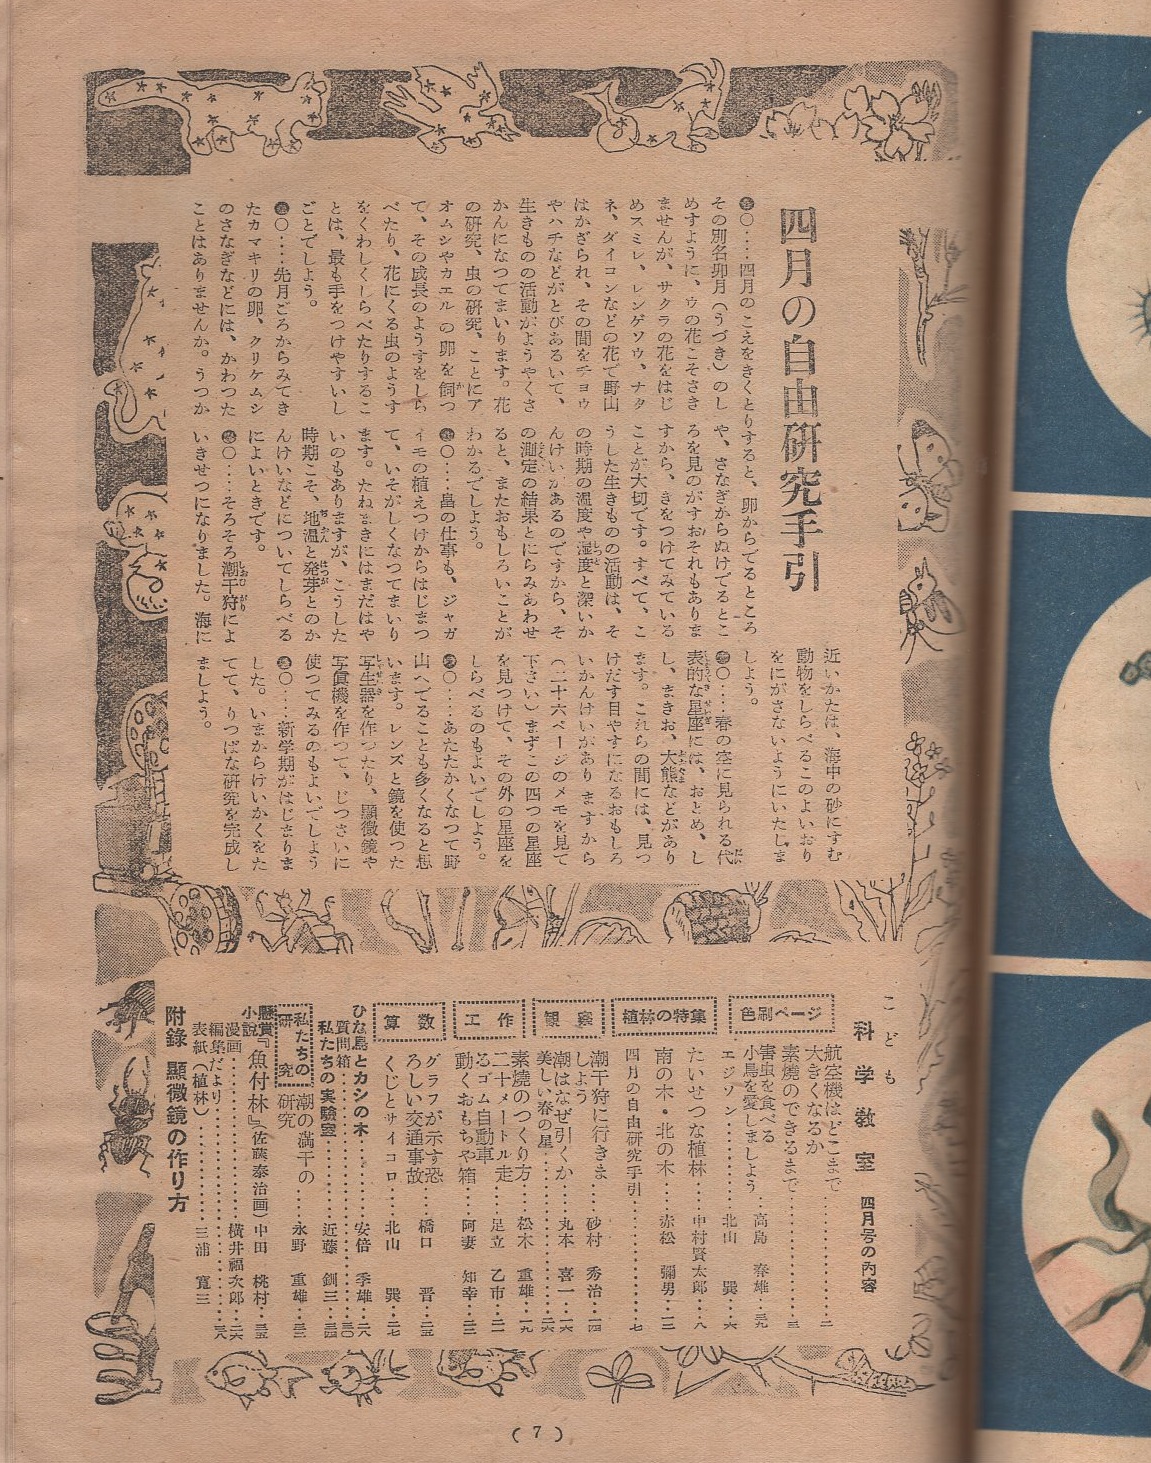 四月の自由研究手引
○‥‥四月のこえをきくとりすると、卵からでるところ
その別名卯月（うづき）のし
めすように、ウの花こそさき
ませんが、サクラの花をはじ
めスミレ、レンゲソウ、ナタ
ネ、ダイコンなどの花で野山
はかざられ、その間をチョウ
やハチなどがとびあるいて、
生きものの活動がようやくさ
かんになつてまいります。花
の研究、虫の研究、ことにア
オムシやカエルの卵を飼つ
て、その成長のようすをしら
べたり、花にくる虫のようす
をくわしくしらべたりするこ
とは、最も手をつけやすいし
ごとでしよう。
○‥‥先月ごろからみてき
たカマキリの卵、クリケムシ
のさなぎなどには、かわつた
ことはありませんか。うつか
や、さなぎからぬけでるとこ
ろを見のがすおそれもありま
すから、きをつけてみている
ことが大切です。すべて、こ
うした生きものの活動は、そ
の時期の温度や湿度と深いか
んけいがあるのですから、そ
の測定の結果とにらみあわせ
ると、またおもしろいことが
わかるでしよう。
○‥‥畠の仕事も、ジャガ
イモの植えつけからはじまつ
て、いそがしくなつてまいり
ます。たねまきにはまだはや
いのもありますが、こうした
時期こそ、地温と発芽とのか
んけいなどについてしらべる
によいときです。
○‥‥そろそろ潮干狩によ
いきせつになりました。海に
近いかたは、海中の砂にすむ
動物をしらべるこのよいおり
をにがさないようにいたしま
しよう。
○‥‥春の空に見られる代
表的な星座には、おとめ、し
し、まきお、大熊などがあり
ます。これらの間には、見つ
けだす目やすになるおもしろ
いかんけいがありますから
（二十六ページのメモを見て
下さい）まずこの四つの星座
を見つけて、その外の星座を
しらべるのもよいでしよう。
○‥‥あたたかくなつて野
山へでることも多くなると思
います。レンズと鏡を使つた
写生器を作つたり、顕微鏡や
写真機を作つて、じつさいに
使つてみるのもよいでしよう
○‥‥新学期がはじまりま
した。いまからけいかくをた
てて、りつぱな研究を完成し
ましよう。
こども
科学教室 四月号の内容
色刷ページ
航空機はどこまで
大きくなるか‥‥二
素焼のできるまで‥‥三
害虫を食べる
小鳥を愛しましよう‥高島 春雄‥三九
エジソン‥‥北山 巽‥六
植林の特集
たいせつな植林‥‥中村賢太郎‥八
南の木・北の木‥‥赤松 彌男‥一二
四月の自由研究手引‥‥七
観察
潮干狩に行きま
しよう‥‥砂村 秀治‥一四
潮はなぜ引くか‥丸本 喜一‥一六
美しい春の星‥‥二六
工作
素焼のつくり方‥松木 重雄‥一九
二十メートル走
るゴム自動車‥‥足立 乙市‥二一
動くおもちや箱‥阿妻 知幸‥二三
算数
グラフが示す恐
ろしい交通事故‥橋口 晋‥二五
くじとサイコロ‥北山 巽‥二七
ひな鳥とカシの木‥‥安倍 季雄‥二八
質問箱‥‥三〇
私たちの実験室‥‥近藤 釧三‥三四
私たちの研究
潮の満干の
研究‥‥永野 重雄‥三二
懸賞小説『魚付林』（佐藤泰治画）中田 桃村‥三五
漫画‥‥横井福次郎‥二六
編集だより‥‥三八
表紙（植林）‥‥三浦 寛三
附録 顕微鏡の作り方
(7)